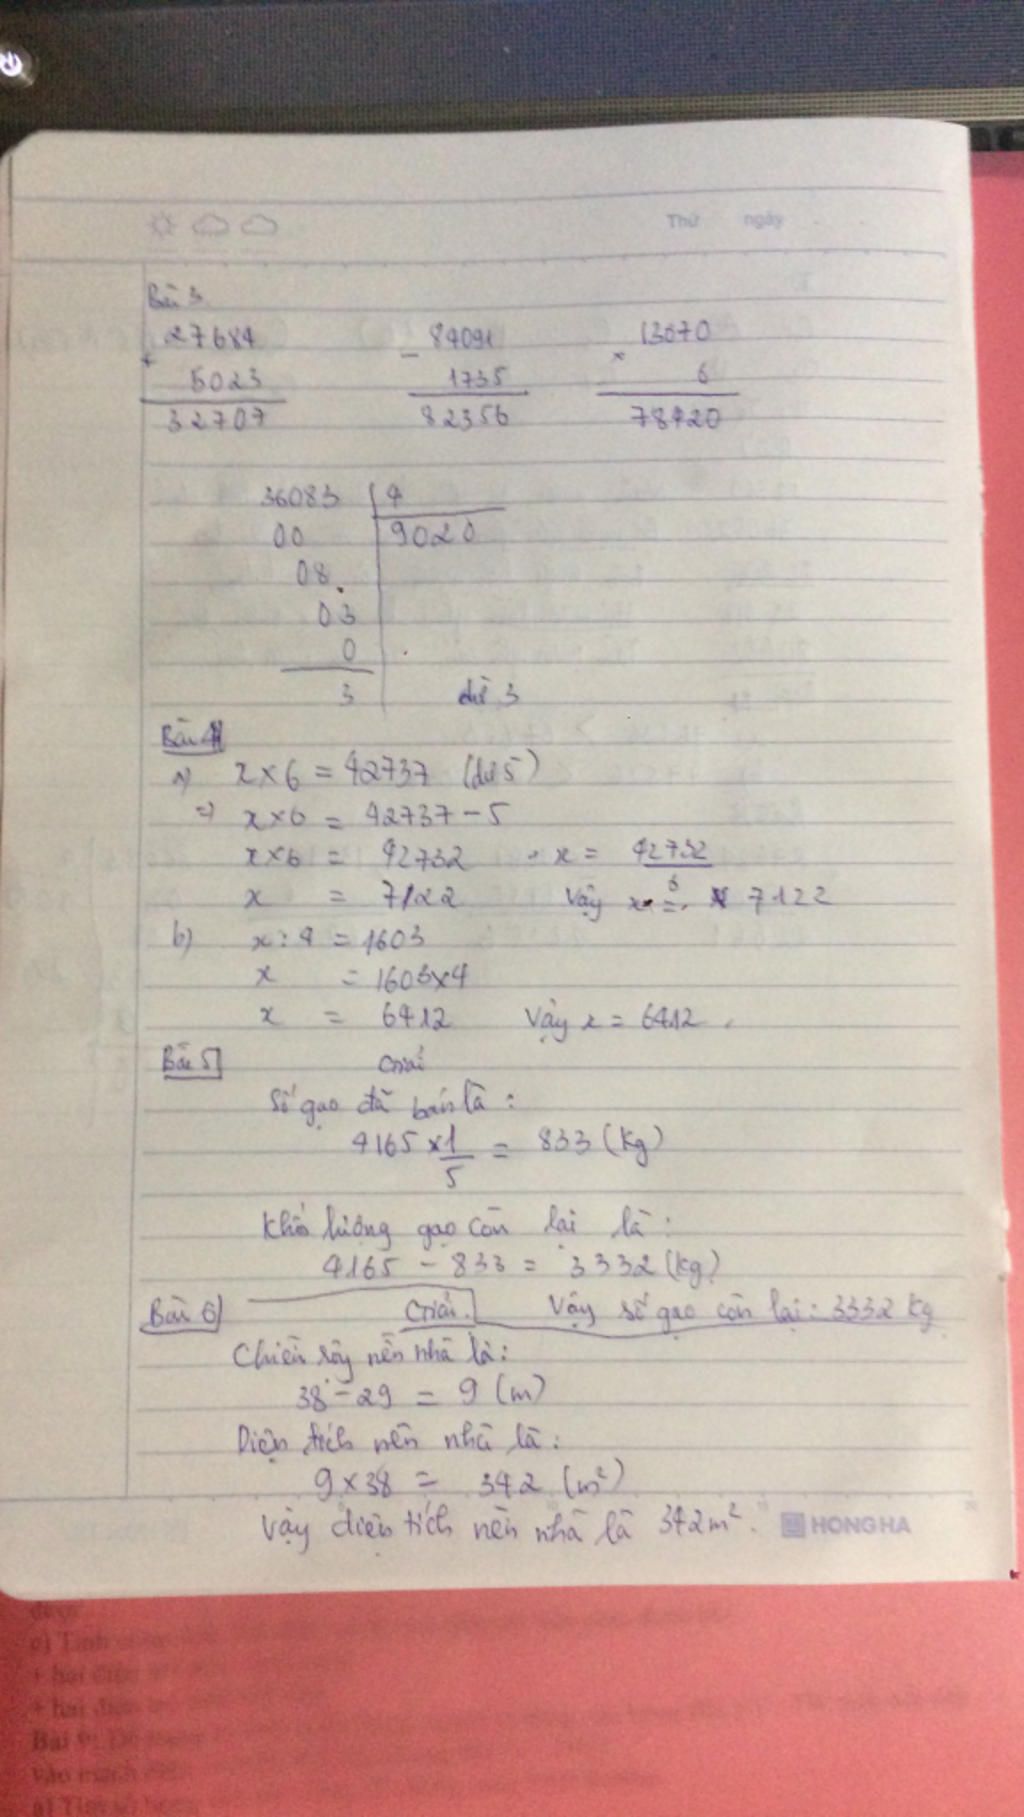 Thứ ngày
Bài 3
27684 84091 13070
+ - ×
5023 1735 6
32707 82356 78420
36083 4
00 9020
08
03
0
3 dư 3
Bài 4
a) x × 6 = 42737 (dư 5)
=> x × 6 = 42737 - 5
x × 6 = 42732 x = 42732/6
x = 7122 Vậy x = 7122
b) x : 4 = 1603
x = 1603 × 4
x = 6412 Vậy x = 6412
Bài 5 Giải
Số gạo đã bán là :
4165 × 1/5 = 833 (kg)
Khối lượng gạo còn lại là :
4165 - 833 = 3332 (kg)
Bài 6 Giải Vậy số gạo còn lại : 3332 kg
Chiều nền nhà là :
38 - 29 = 9 (m)
Diện tích nền nhà là :
9 × 38 = 342 (m²)
Vậy diện tích nền nhà là 342 m².
HONG HA
c) Tính
+ hai
+ hai
Bài 9:
vào mạch
a) Tìm số